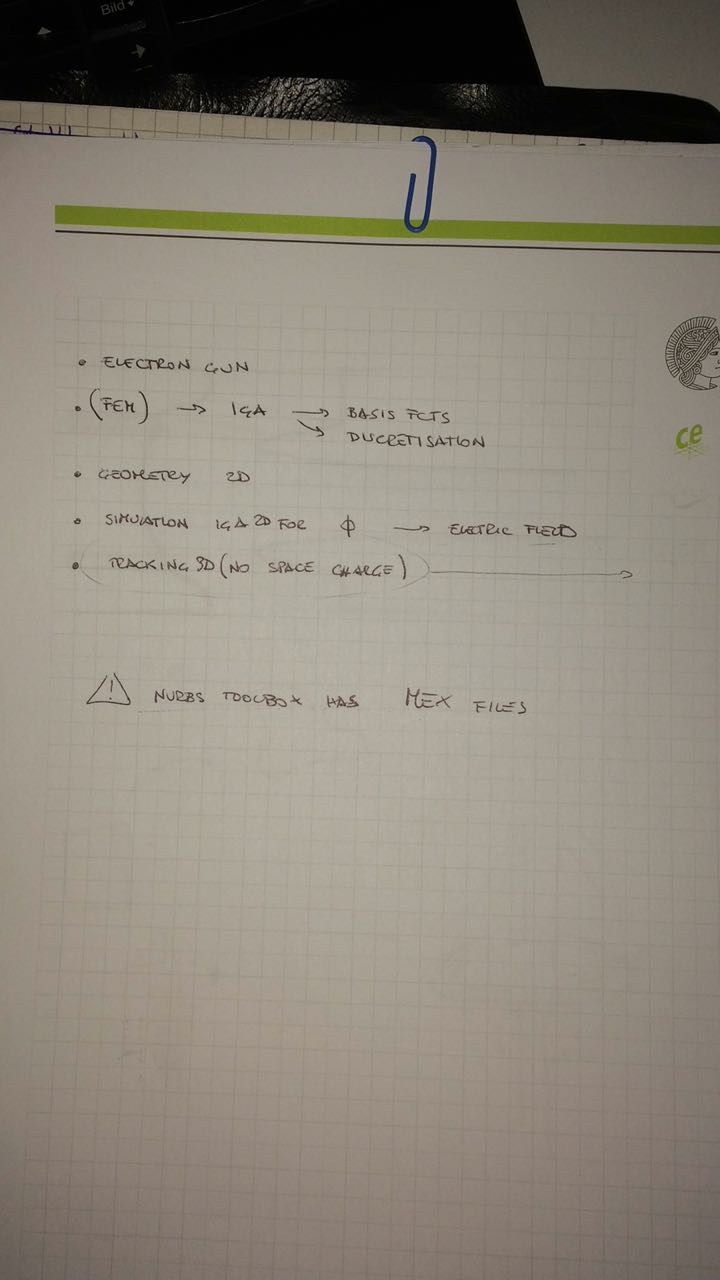 Bild
• ELECTRON GUN
• (FEM) → IGA → BASIS FCTS
↘ DISCRETISATION
• GEOMETRY 2D
• SIMULATION IGA 2D FOR ϕ → ELETRIC FIELD
• TRACKING 3D (NO SPACE CHARGE) →
⚠ NURBS TOOLBOX HAS MEX FILES
ce